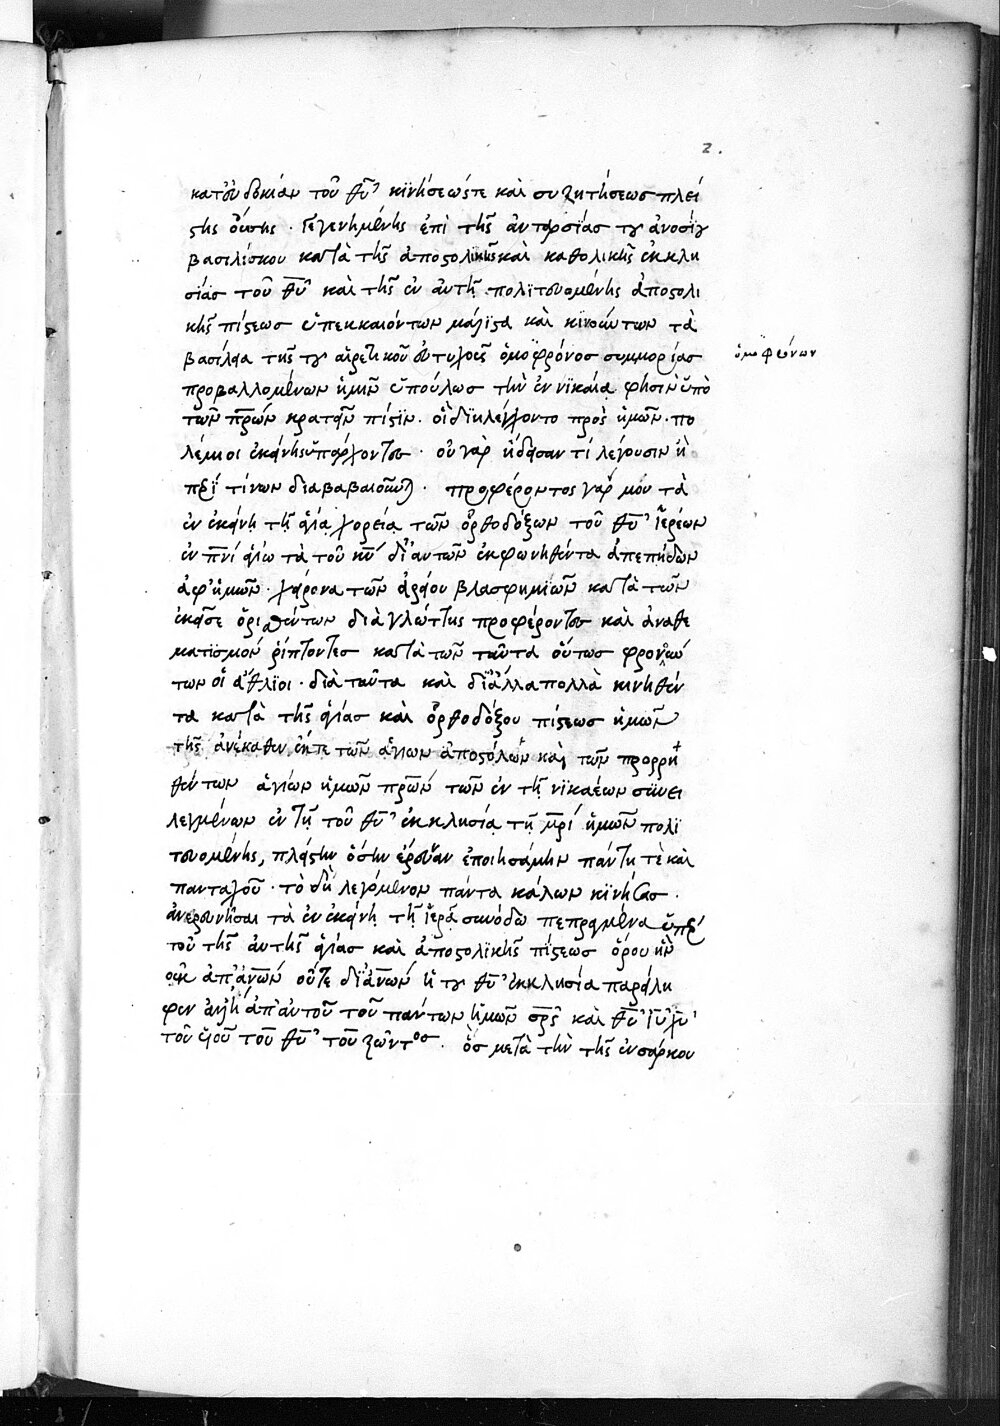 2.
κατ' εὐδοκίαν τοῦ θυ κϊνήσεώς τε καὶ συζητήσεως πλεί
στης οὔσης · γεγενημένης ἐπὶ τῆς ἀνταρσίας τοῦ ἀνοσίου
βασιλίσκου κατὰ τῆς ἀποστολικῆς καὶ καθολικῆς ἐκκλη
σίας τοῦ θυ καὶ τῆς ἐν αὐτῆ πολϊτευομένης ἀποστολι
κῆς πίστεως ὑπεκκαιόντων μάλϊστα καὶ κινούντων τὰ
βασίλεια τῆς τοῦ αἱρετικοῦ εὐτυχοῦς ὁμόφρονος συμμορίας
ὁμοφώνων
προβαλλομένων ἡμῖν ὑπούλως τὴν ἐν νϊκαία φησὶν ὑπὸ
τῶν πρων κρατεῖν πίστϊν · οἳ διηλέγχοντο πρὸς ἡμῶν · πο
λέμιοι ἐκείνης ὑπάρχοντες · οὐ γὰρ ἤδεσαν τί λέγουσιν ἢ
περὶ τίνων διαβαβαιοῦνται · προφέροντος γάρ μου τὰ
ἐν ἐκείνη τῆ ἁγία χορεία τῶν ὀρθοδόξων τοῦ θυ ἱερέων
ἐν πνι ἁγίω τὰ τοῦ κυ δι' αὐτῶν ἐκφωνηθέντα ἀπεπήδων
ἀφ' ἡμῶν · χείρονα τῶν ἀρείου βλασφημϊῶν κατὰ τῶν
ἐκεῖσε ὁρισθέντων διὰ γλώττης προφέροντες καὶ ἀναθε
ματϊσμὸν ῥίπτοντες κατὰ τῶν ταῦτα οὕτως φρονού
των οἱ ἄθλϊοι · διὰ ταῦτα καὶ δι' ἄλλα πολλὰ κινηθέν
τα κατὰ τῆς ἁγίας καὶ ὀρθοδόξου πίστεως ἡμῶν
τῆς ἀνέκαθεν ἔκ τε τῶν ἁγίων ἀποστόλων καὶ τῶν προρρη
θέντων ἁγίων ἡμῶν πρων τῶν ἐν τῆ νϊκαέων συνει
λεγμένων ἐν τῆ τοῦ θυ ἐκκλησία τῆ μρι ἡμῶν πολϊ
τευομένης, πλείστην ὅσην ἔρευναν ἐποιησάμην πάντη τὲ καὶ
πανταχοῦ · τὸ δὴ λεγόμενον πάντα κάλων κϊνήσας ·
ἀνερευνῆσαι τὰ ἐν ἐκείνη τῆ ἱερᾶ συνόδω πεπραγμένα ὑπὲρ
τοῦ τῆς αὐτῆς ἁγίας καὶ ἀποστολϊκῆς πίστεως ὅρου ἣν
οὐκ ἀπ' ἀνων οὔτε δι' ἀνων ἡ τοῦ θυ ἐκκλησία παρείλη
φεν ἀλλ' ἢ ἀπ' αὐτοῦ τοῦ πάντων ἡμῶν σρς καὶ θυ ιυ χυ
τοῦ υἱοῦ τοῦ θυ τοῦ ζῶντος · ὃς μετὰ τὴν τῆς ἐνσάρκου